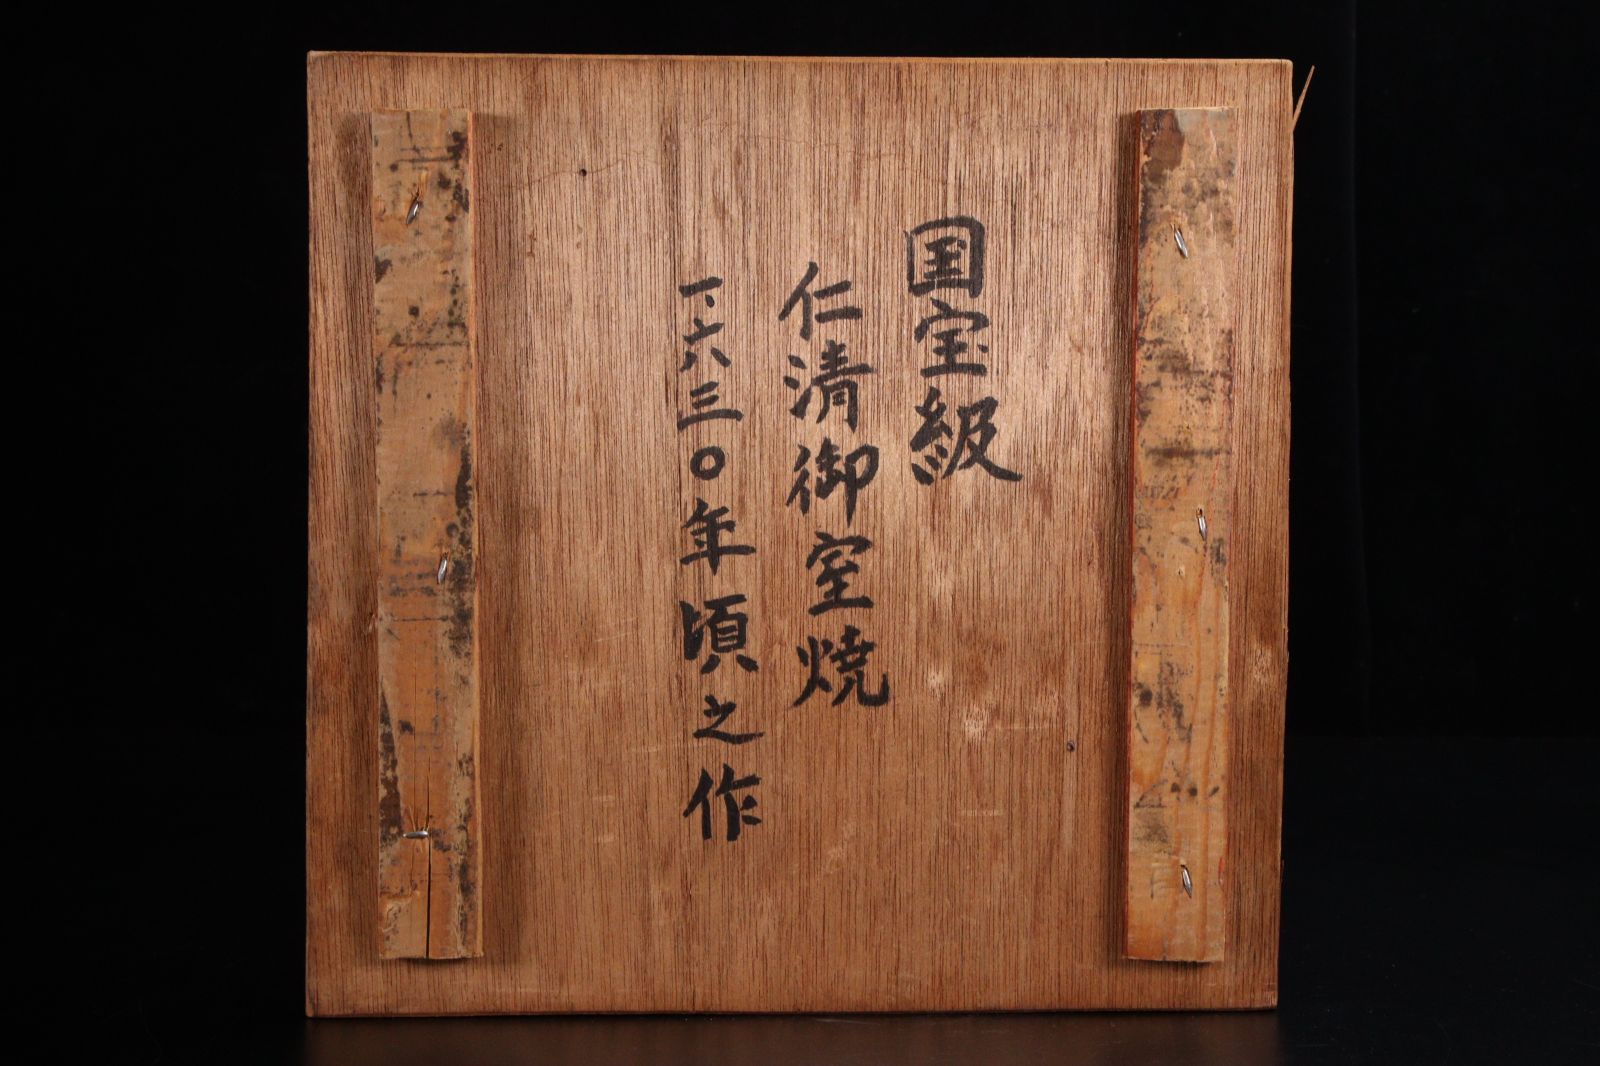 国宝級
仁清御室焼
一、六三〇年頃之作